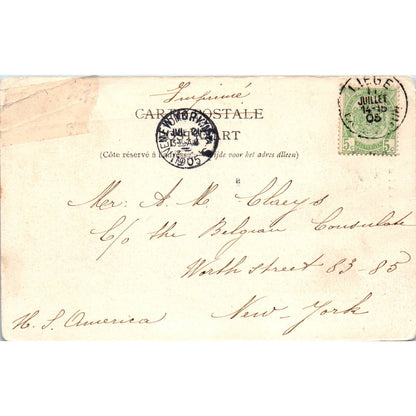 Imprimé
CARTE POSTALE
POSTKAART
(Côte réservé à l'adresse) (Zijde voor het adres alleen)
LIEGE
11
JUILLET
14-15
05
5c 5c
NEW YORK, N.Y.
JUL 21
05
Mr. A. M. Claeys
C/o the Belgian Consulate
Worth street 83-85
New-York
H. S. America